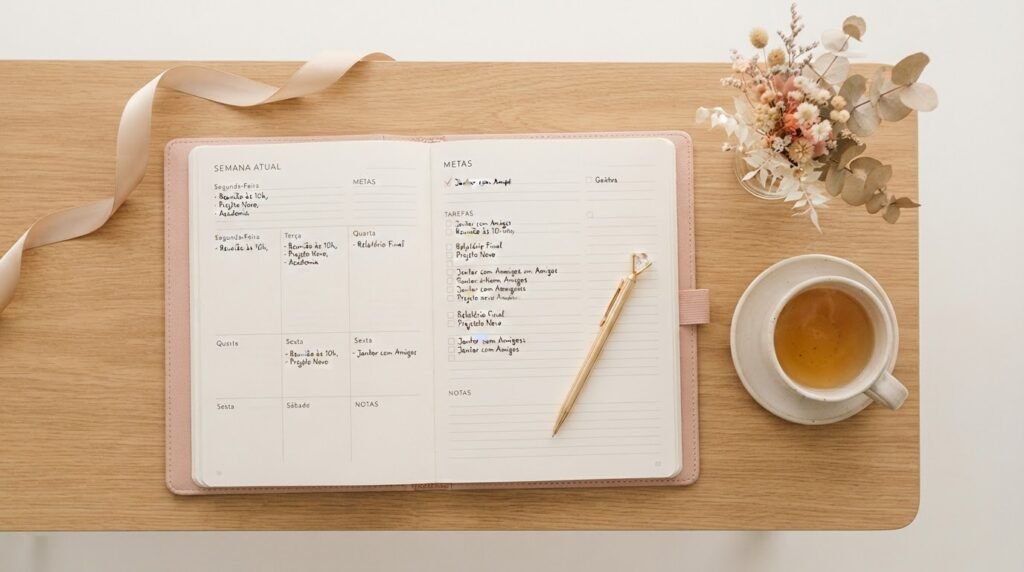 SEMANA ATUAL
Segunda-Feira
- Reunião às 10h,
- Projeto Novo,
- Academia
METAS
Segunda-Feira
- Reunião às 10h,
Terça
- Reunião às 10h,
- Projeto Novo,
- Academia
Quarta
- Relatório Final
Quarta
Sexta
- Reunião às 10h,
- Projeto Novo
Sexta
- Jantar com Amigos
Sexta
Sábado
NOTAS
METAS
Jantar com
TAREFAS
Jantar com Amigos
Reunião às
Relatório Final
Projeto Novo
Jantar com Amigos
Jantar com
Projeto novo
Relatório Final
Projeto Novo
Jantar com
Jantar com Amigos
NOTAS